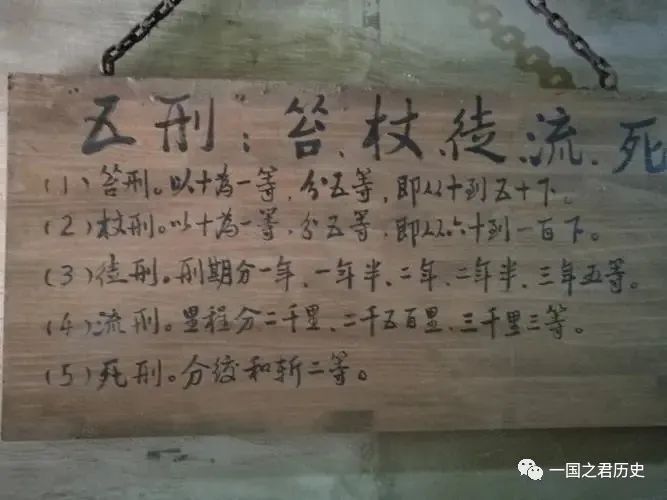 “五刑”：笞、杖、徒、流、死
(1)笞刑。以十为一等，分五等，即从十到五十下。
(2)杖刑。以十为一等，分五等，即从六十到一百下。
(3)徒刑。刑期分一年、一年半、二年、二年半、三年五等。
(4)流刑。里程分二千里、二千五百里、三千里三等。
(5)死刑。分绞和斩二等。
一国之君历史